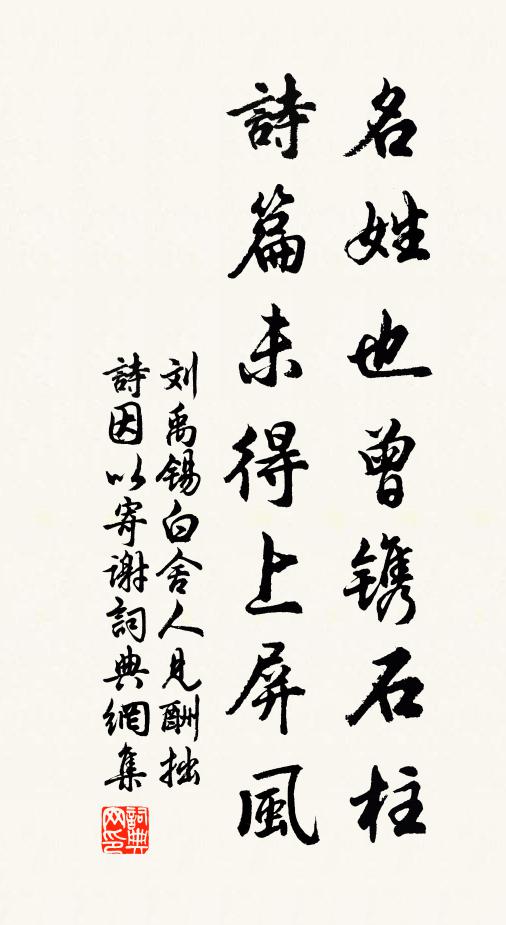 名姓也曾镌石柱
詩篇未得上屏風
刘禹锡白舍人見酬拙
詩因以寄谢詞典網集
詞典
网印